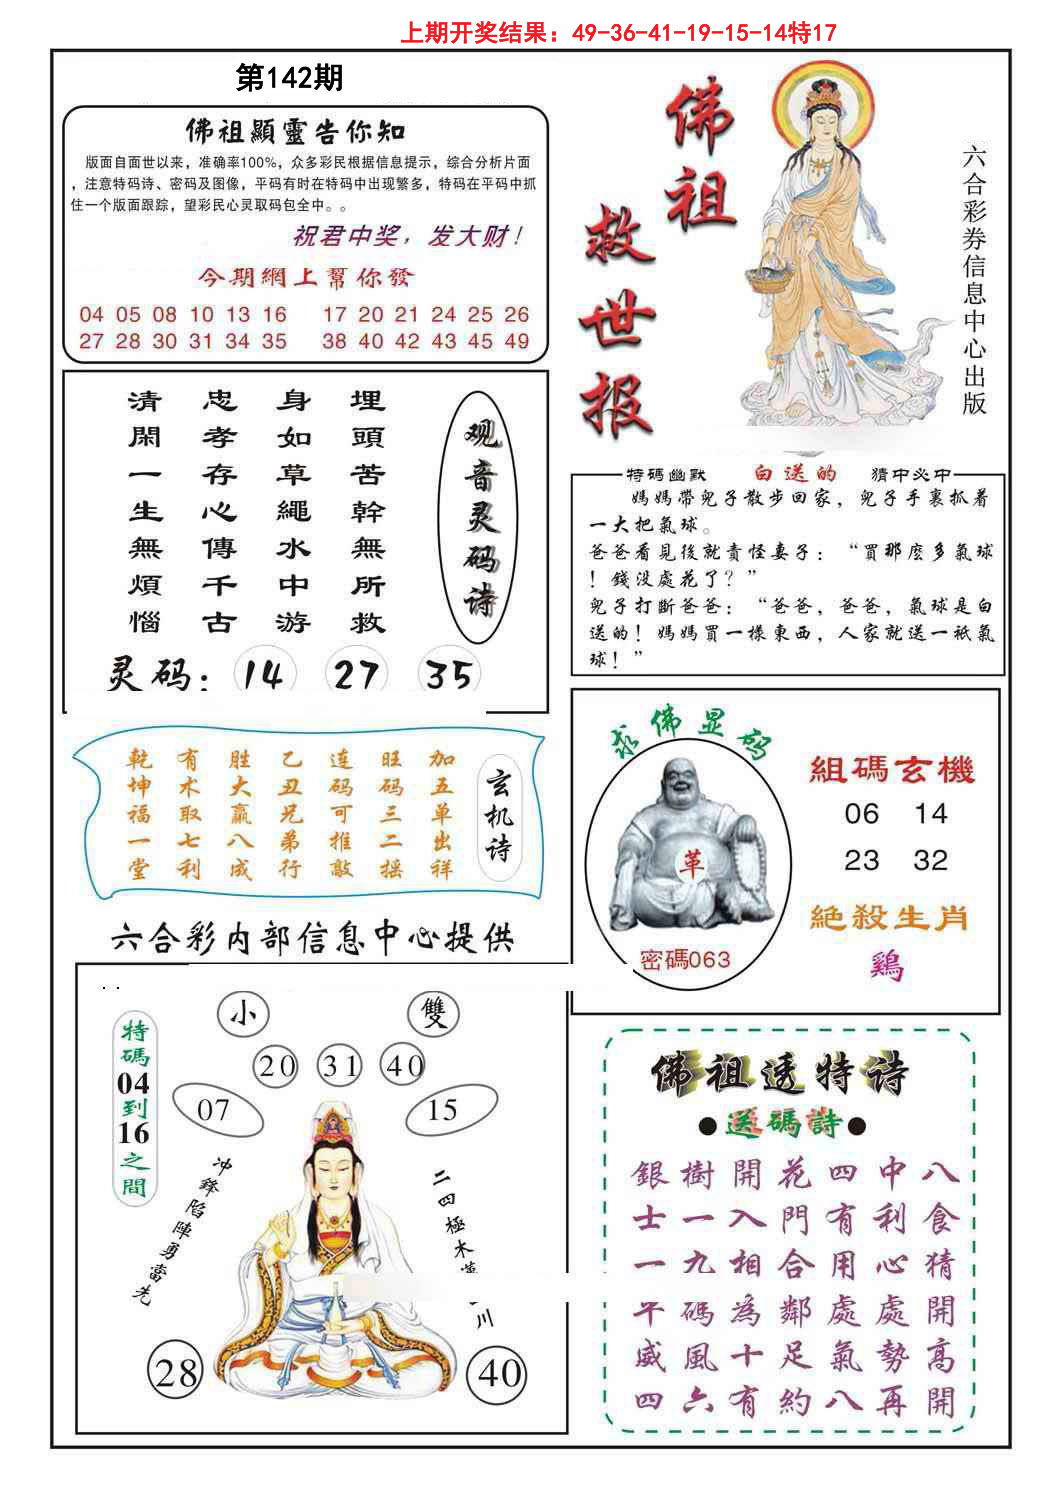 上期开奖结果：49-36-41-19-15-14特17
第142期
佛祖顯靈告你知
版面自面世以来，准确率100%，众多彩民根据信息提示，综合分析片面
，注意特码诗、密码及图像，平码有时在特码中出现繁多，特码在平码中抓
住一个版面跟踪，望彩民心灵取码包全中。。
祝君中奖，发大财！
今期網上幫你發
04 05 08 10 13 16 17 20 21 24 25 26
27 28 30 31 34 35 38 40 42 43 45 49
佛祖
救世报
六合彩券信息中心出版
清閑一生無煩惱
忠孝存心傳千古
身如草繩水中游
埋頭苦幹無所救
观音灵码诗
灵码：14 27 35
特碼幽默 白送的 猜中必中
媽媽帶兒子散步回家，兒子手裏抓着
一大把氣球。
爸爸看見後就責怪妻子：“買那麼多氣球
！錢没處花了？”
兒子打斷爸爸：“爸爸，爸爸，氣球是白
送的！媽媽買一樣東西，人家就送一祇氣
球！”
乾坤福一堂
有术取七利
胜大赢八成
乙丑兄弟行
连码可推敲
旺码三二摇
加五单出祥
玄机诗
求佛显码
革
密碼063
組碼玄機
06 14
23 32
絕殺生肖
鷄
六合彩内部信息中心提供
特碼04到16之間
小
雙
20 31 40
07
15
冲鋒陷陣勇當先
二四極木
川
28
40
佛祖透特诗
●送碼詩●
銀樹開花四中八
士一入門有利食
一九相合用心猜
平碼為鄰處處開
威風十足氣勢高
四六有約八再開